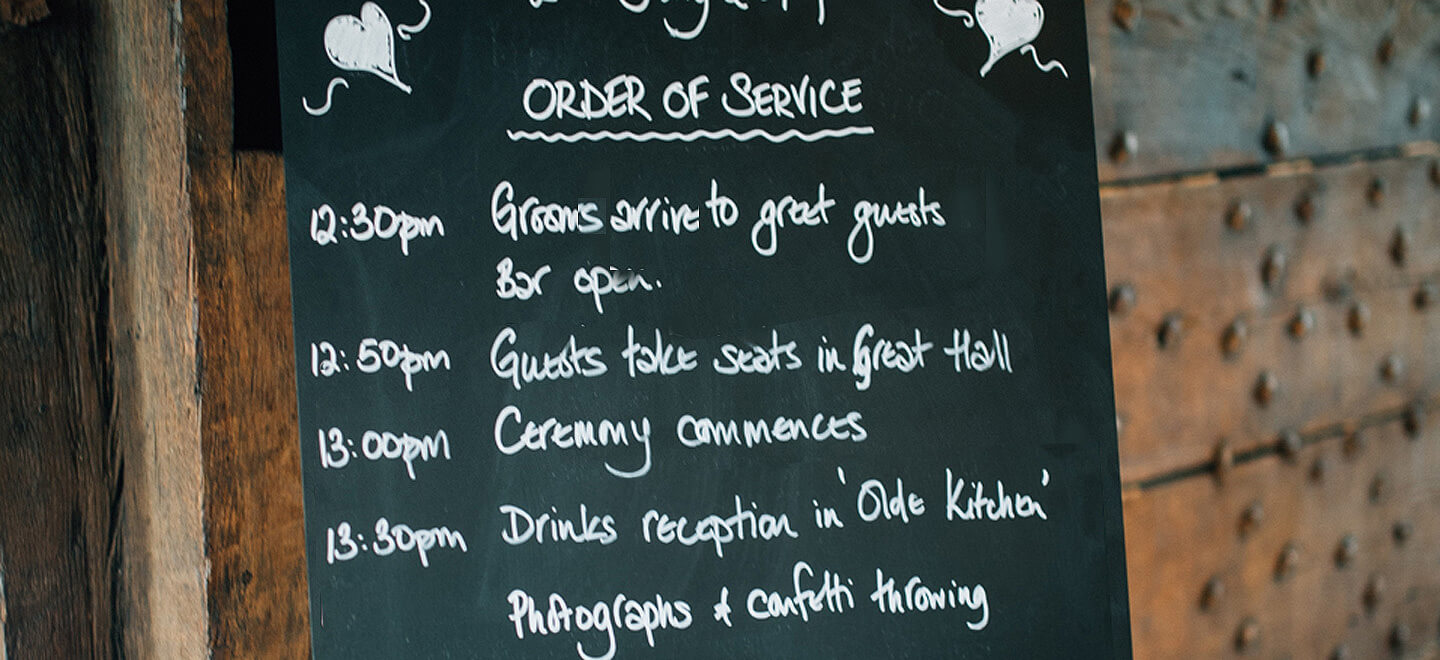 ORDER OF SERVICE
12:30pm Grooms arrive to greet guests
Bar open.
12:50pm Guests take seats in Great Hall
13:00pm Ceremony commences
13:30pm Drinks reception in 'Olde Kitchen'
Photographs & confetti throwing